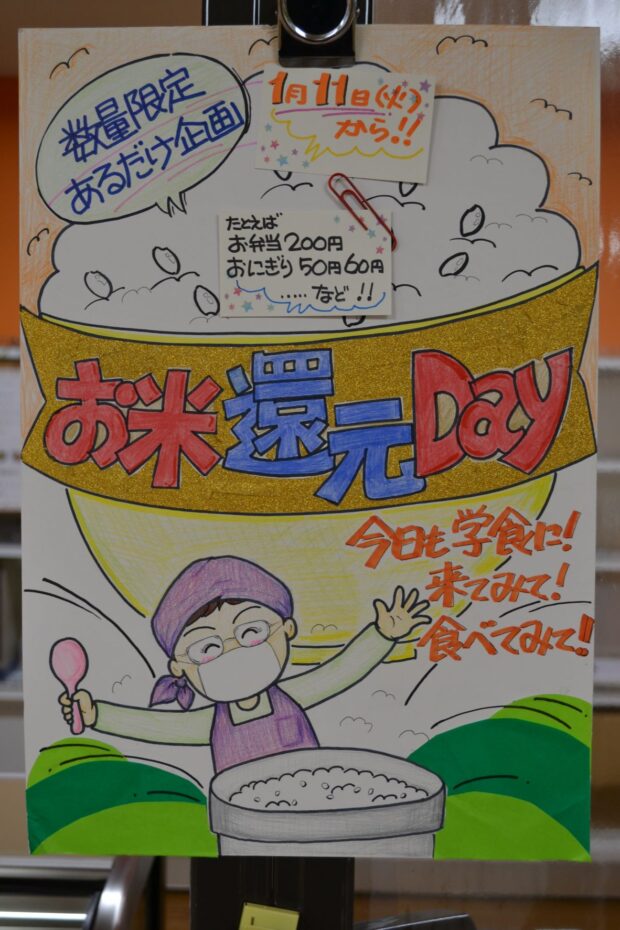 数量限定
あるだけ企画
1月11日(火)
から!!
たとえば
お弁当200円
おにぎり50円60円
‥‥‥など!!
お米還元Day
今日も学食に!
来てみて!
食べてみて!!